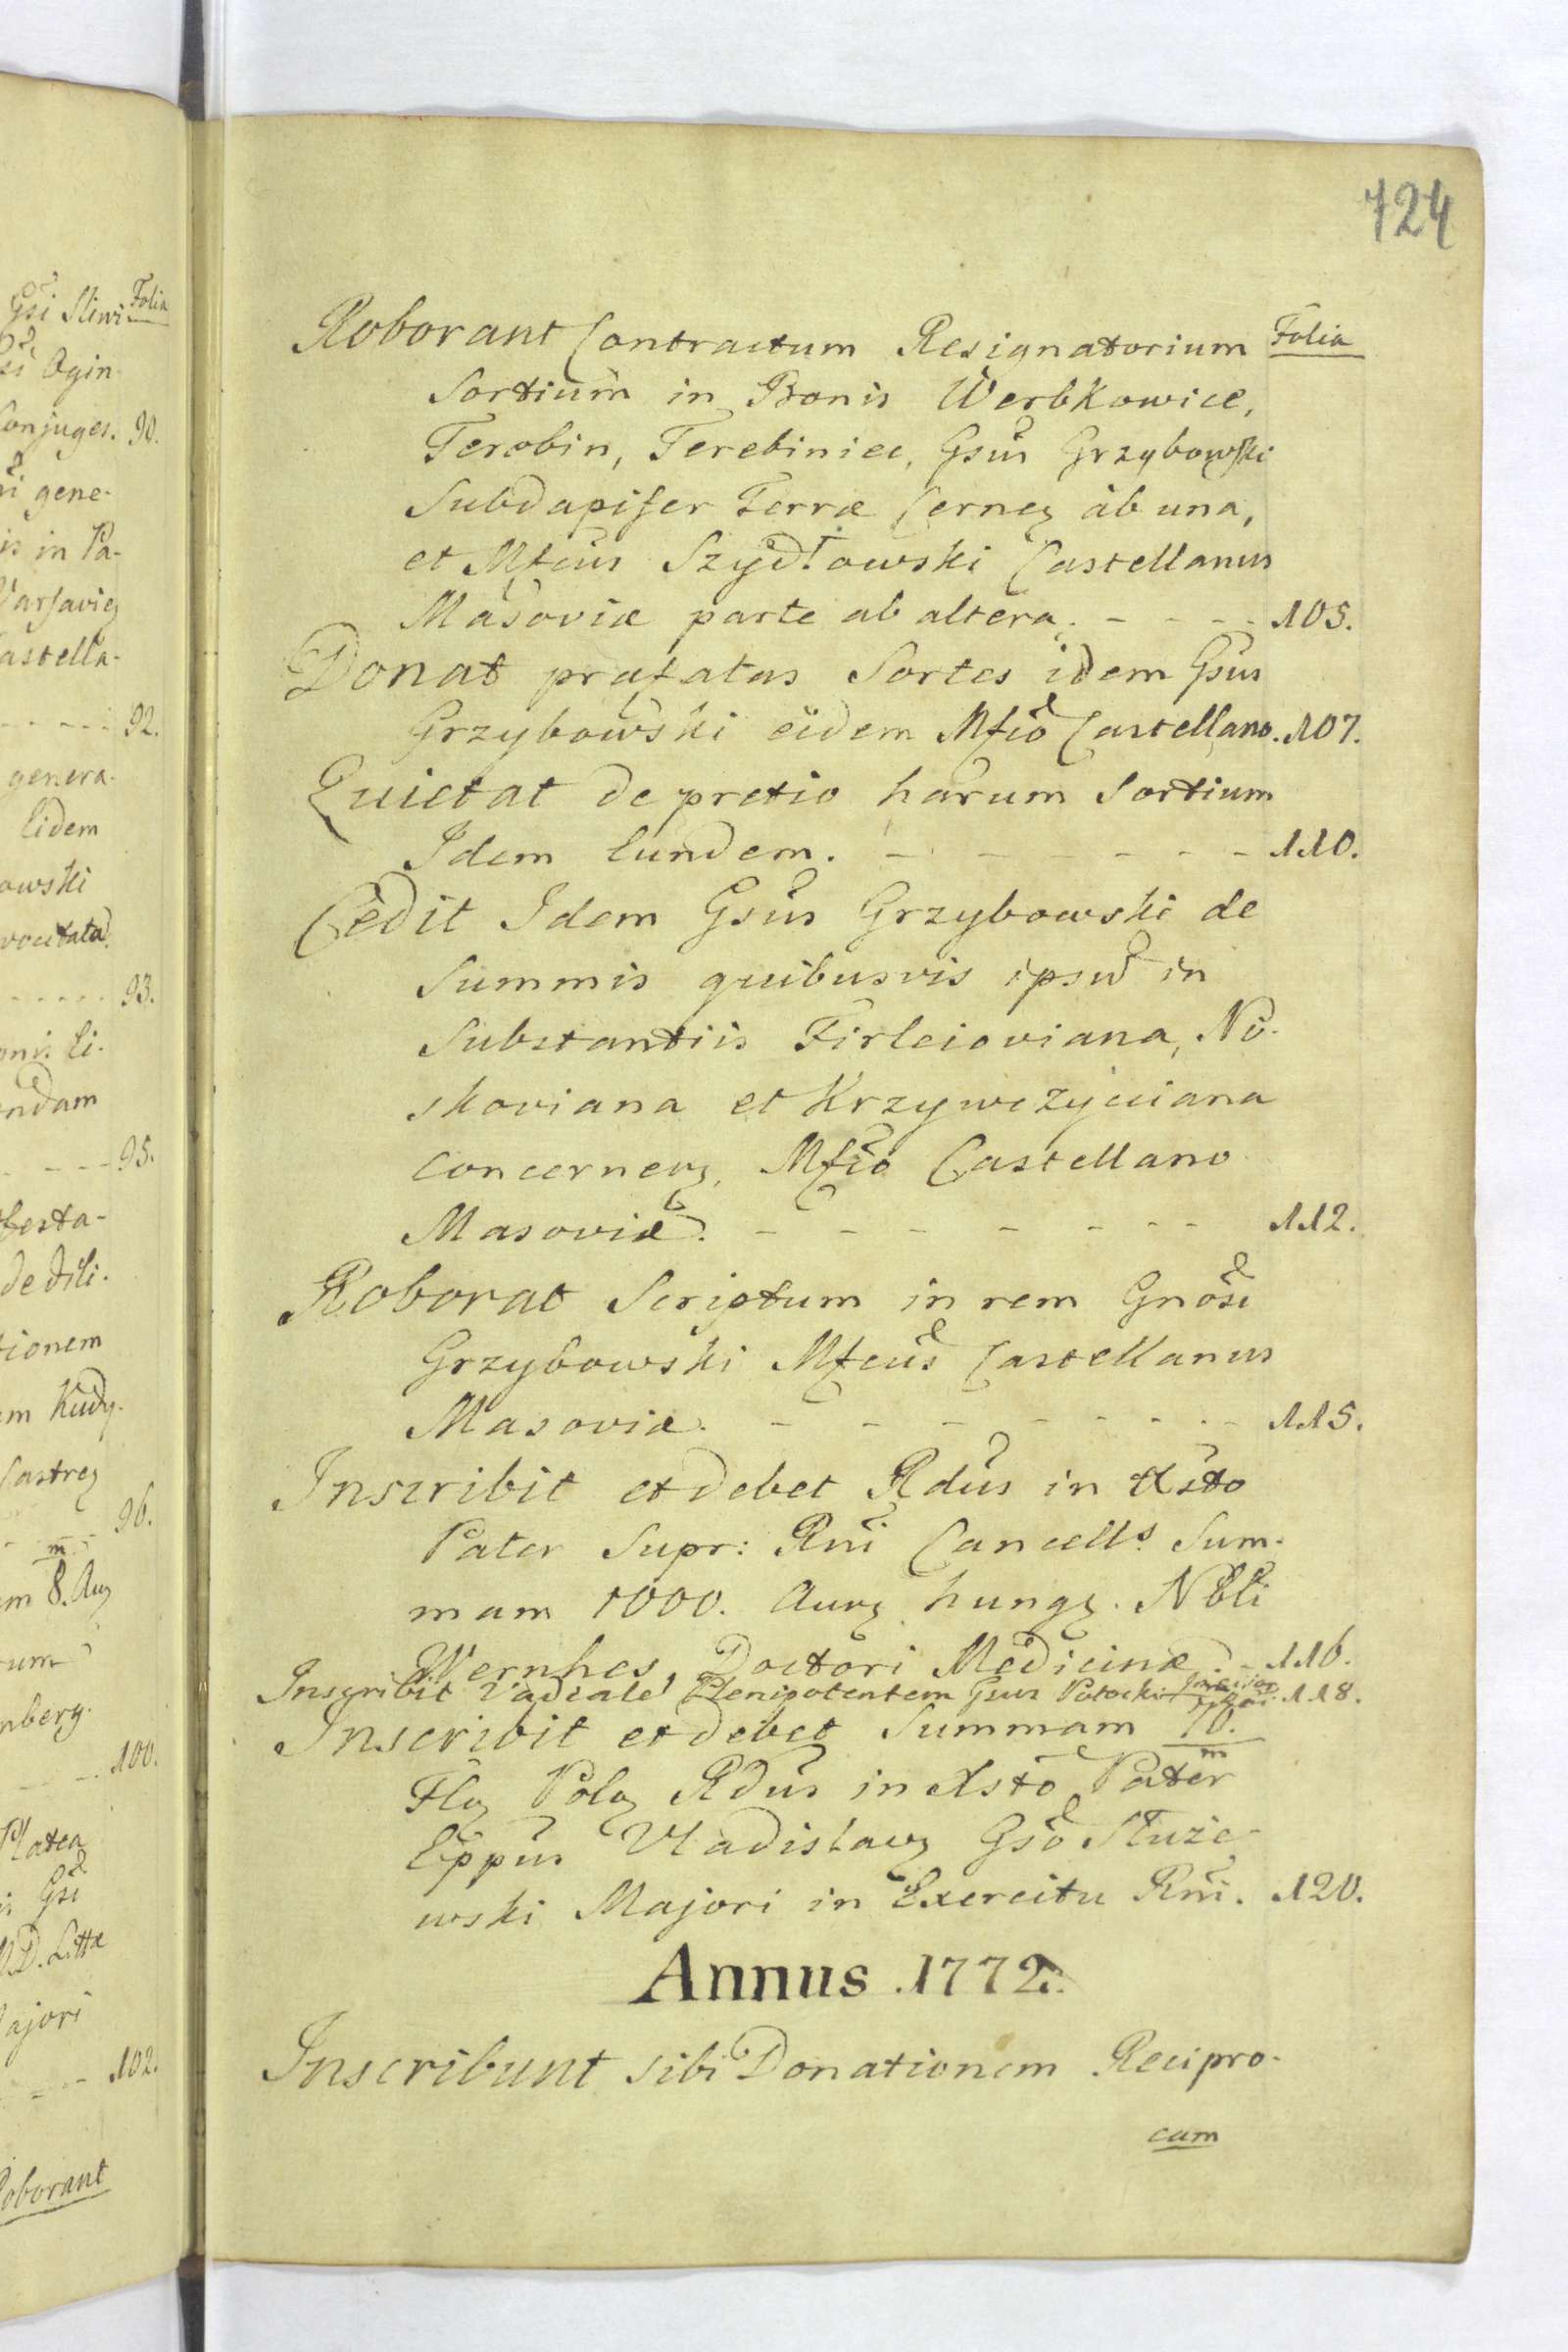 724
Gsi Sliwi Folia
Ogin-
Conjuges. 90.
gene-
in Pa-
Varsavien
astella-
92.
genera-
Eidem
owski
93.
95.
festa-
tionem
em Kudy-
Castren
96.
m
8. Aug
rum
nberg.
100.
Platea
Gsi
D. Littæ
Majori
102.
Roborant
Roborant Contractum Resignatorium Folia
Sortium in Bonis Werbkowice,
Terobin, Terebiniec, Gsus Grzybowski
Subdapifer Terræ Cernen ab una,
et Mfcus Szydłowski Castellanus
Masoviæ parte ab altera. - - - - 105.
Donat præfatas Sortes idem Gsus
Grzybowski eidem Mfco Castellano. 107.
Quietat de pretio harum Sortium
Idem Eundem. - - - - - - 110.
Cedit Idem Gsus Grzybowski de
Summis quibusvis ipsu in
Substantiis Firleioviana, No-
skoviana et Krzywczyciana
concernen, Mfco Castellano
Masoviæ. - - - - - - - 112.
Roborat Scriptum in rem Gnosi
Grzybowski Mfcus Castellanus
Masoviæ. - - - - - - - 115.
Inscribit et debet Rdus in Xsto
Pater Supr: Rni Cancells Sum-
mam 1000. Aur hung. Nbli
Wernhes, Doctori Medicinæ. - 116.
Inscribit Vadiale Plenipotentem Gsus Potocki 118.
Inscribit et debet Summam 70.
m
Flo Polo Rdus in Xsto Pater
Eppus Vladislav Gso Służe-
wski Majori in Exercitu Rni. 120.
Annus .1772.
Inscribunt sibi Donationem Recipro-
cam